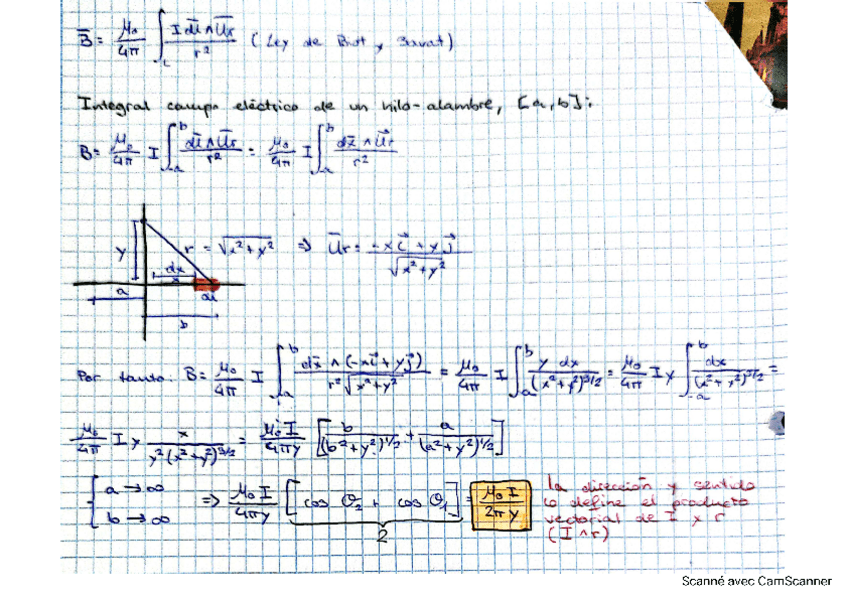 B̄ = μ₀/4π ∫_L I dl̄ ∧ Ūr / r² (Ley de Biot y Savat)
Integral campo eléctrico de un hilo-alambre, [a,b]:
B = μ₀/4π I ∫_-a^b dl̄ ∧ Ūr / r² = μ₀/4π I ∫_-a^b dx̄ ∧ Ūr / r²
y r = √(x²+y²) ⇒ Ūr = (-x i⃗ + y j⃗) / √(x²+y²)
dx
x
a dl
b
Por tanto: B = μ₀/4π I ∫_-a^b dx̄ ∧ (-x i⃗ + y j⃗) / r²√(x²+y²) = μ₀/4π I ∫_-a^b y dx / (x²+y²)^3/2 = μ₀/4π I y ∫_-a^b dx / (x²+y²)^3/2 =
μ₀/4π I y x / y²(x²+y²)^3/2 = μ₀ I/4πy [b/(b²+y²)^1/2 + a/(a²+y²)^1/2]
{ a → ∞
b → ∞ ⇒ μ₀ I/4πy [cos θ₂ + cos θ₁] = μ₀ I/2πy
2
la dirección y sentido
lo define el producto
vectorial de I x r
(I ∧ r)
Scanné avec CamScanner